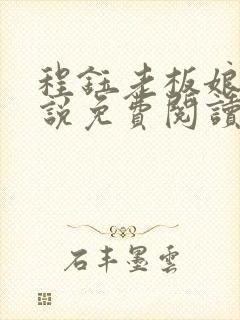 程鈺老板娘小
說免費閱讀
石丰墨雲